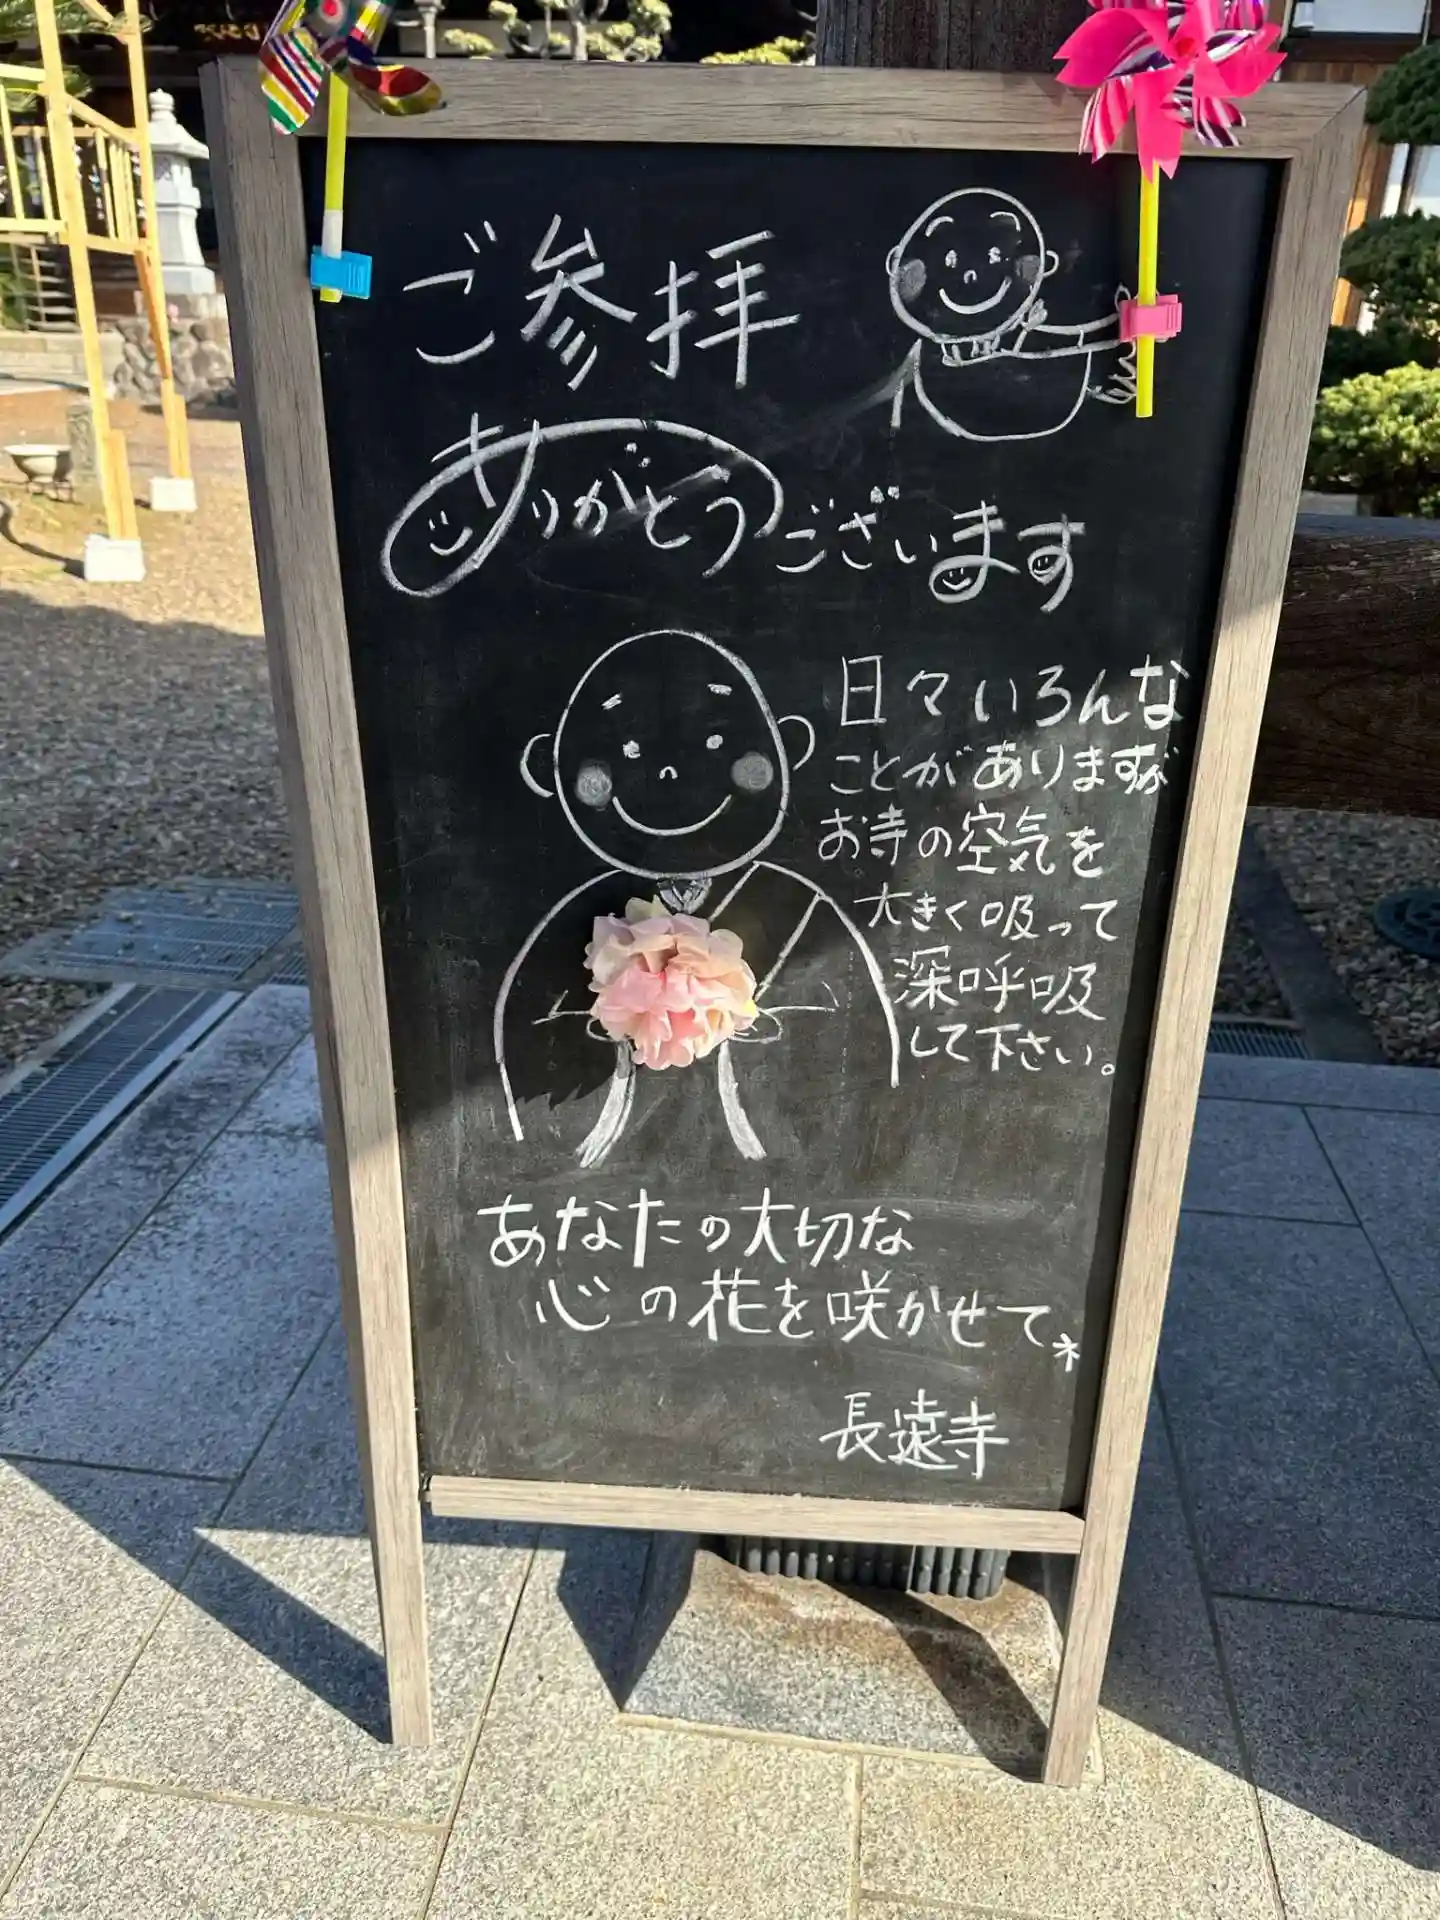 ご参拝
ありがとうございます
日々いろんな
ことがありますが
お寺の空気を
大きく吸って
深呼吸
して下さい。
あなたの大切な
心の花を咲かせてネ
長遠寺